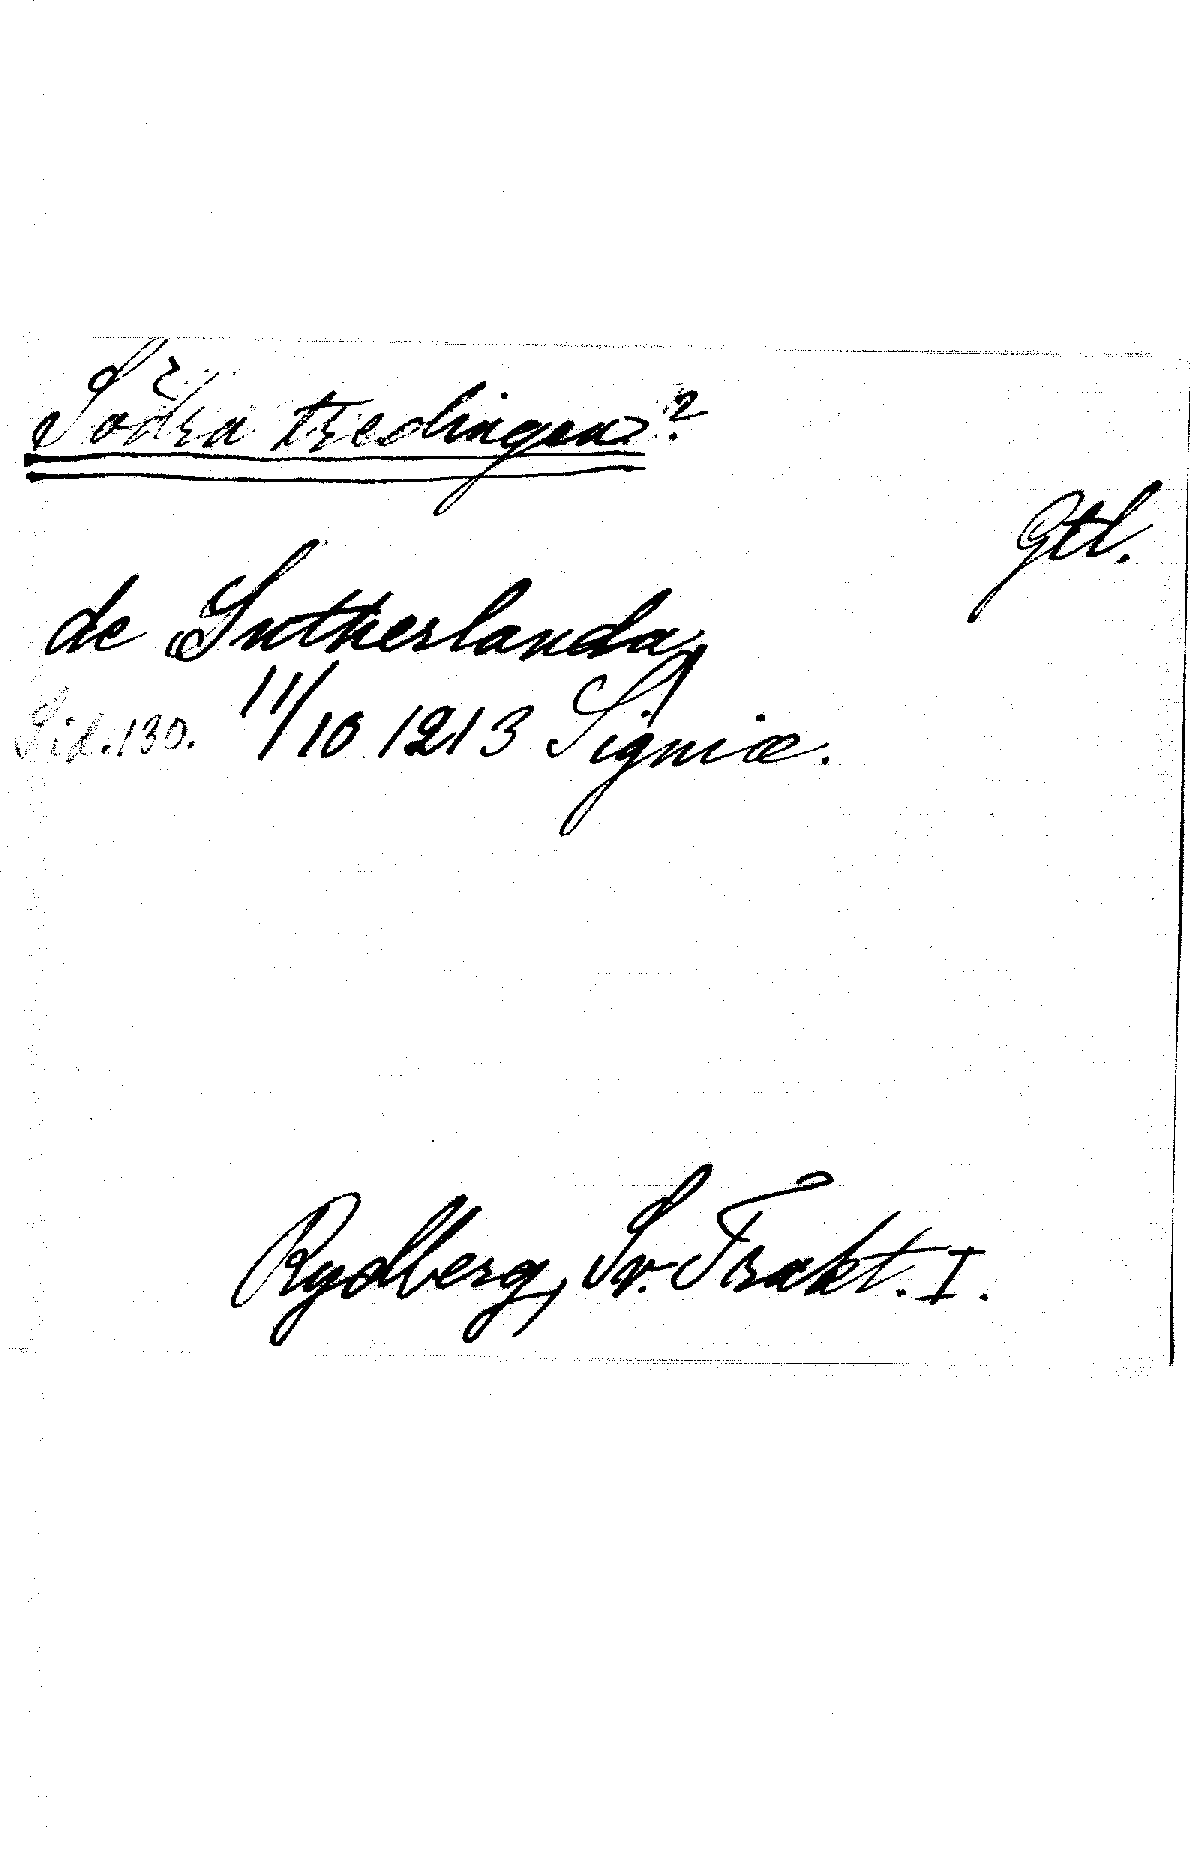 Södra tredingen?
Gtl.
de Sutherlanda,
Sid. 130. 11/10 1213 Signiæ.
Rydberg, Sv. Trakt. I.